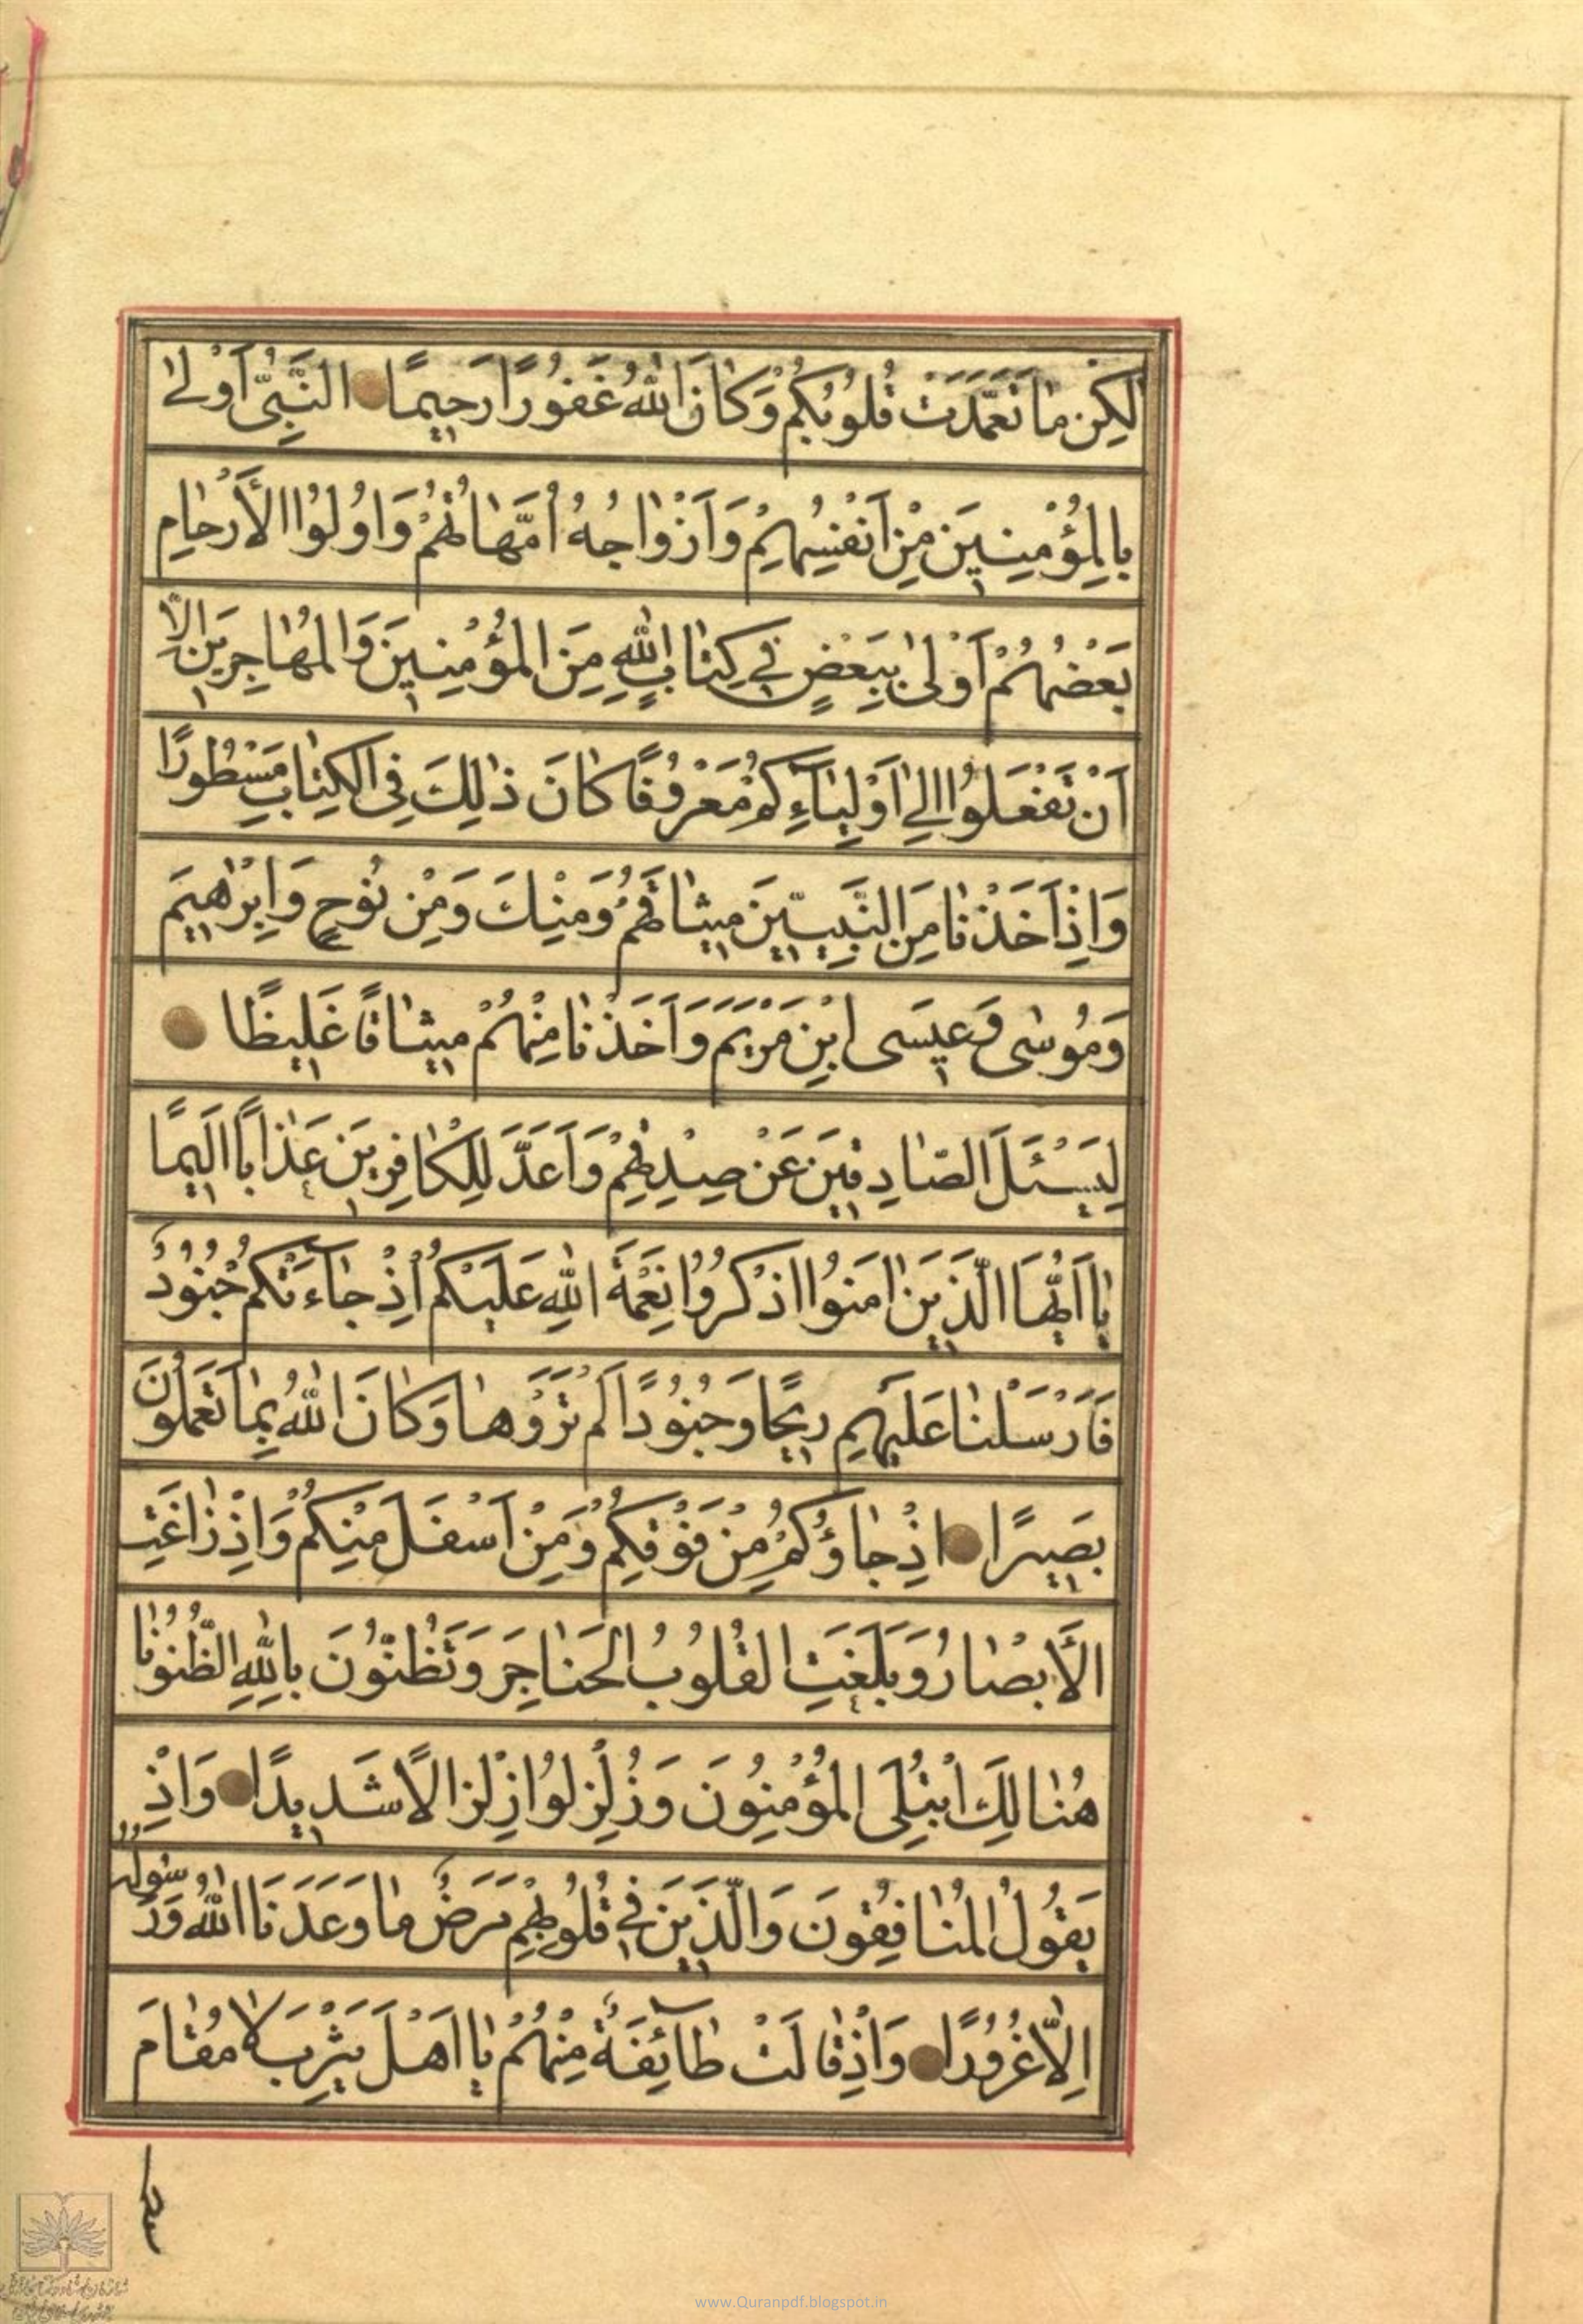 لٰكِن مٰا تَعَمَّدَتْ قُلُوبُكُمْ وَكٰانَ اللّٰهُ غَفُورًا رَحِيمًا النَّبِىُّ اَوْلىٰ
بِالْمُؤْمِنِينَ مِنْ اَنْفُسِهِمْ وَاَزْوٰاجُهُ اُمَّهٰاتُهُمْ وَاُولُوا الْاَرْحٰامِ
بَعْضُهُمْ اَوْلىٰ بِبَعْضٍ فِي كِتٰابِ اللّٰهِ مِنَ الْمُؤْمِنِينَ وَالْمُهٰاجِرِينَ اِلّٰا
اَنْ تَفْعَلُوا اِلىٰ اَوْلِيٰآءِكُمْ مَعْرُوفًا كٰانَ ذٰلِكَ فِى الْكِتٰابِ مَسْطُورًا
وَاِذْ اَخَذْنٰا مِنَ النَّبِيّينَ مِيثٰاقَهُمْ وَمِنْكَ وَمِنْ نُوحٍ وَاِبْرٰهِيمَ
وَمُوسٰى وَعِيسَى ابْنِ مَرْيَمَ وَاَخَذْنٰا مِنْهُمْ مِيثٰاقًا غَلِيظًا
لِيَسْئَلَ الصّٰادِقِينَ عَنْ صِدْقِهِمْ وَاَعَدَّ لِلْكٰافِرِينَ عَذٰابًا اَلِيمًا
يٰا اَيُّهَا الَّذِينَ اٰمَنُوا اذْكُرُوا نِعْمَةَ اللّٰهِ عَلَيْكُمْ اِذْ جٰآءَتْكُمْ جُنُودٌ
فَاَرْسَلْنٰا عَلَيْهِمْ رِيحًا وَجُنُودًا لَمْ تَرَوْهٰا وَكٰانَ اللّٰهُ بِمٰا تَعْمَلُونَ
بَصِيرًا اِذْ جٰاؤُكُمْ مِنْ فَوْقِكُمْ وَمِنْ اَسْفَلَ مِنْكُمْ وَاِذْ زٰاغَتِ
الْاَبْصٰارُ وَبَلَغَتِ الْقُلُوبُ الْحَنٰاجِرَ وَتَظُنُّونَ بِاللّٰهِ الظُّنُونٰا
هُنٰالِكَ ابْتُلِىَ الْمُؤْمِنُونَ وَزُلْزِلُوا زِلْزٰالًا شَدِيدًا وَاِذْ
يَقُولُ الْمُنٰافِقُونَ وَالَّذِينَ فِي قُلُوبِهِمْ مَرَضٌ مٰا وَعَدَنَا اللّٰهُ وَرَسُولُهُ
اِلّٰا غُرُورًا وَاِذْ قٰالَتْ طٰآئِفَةٌ مِنْهُمْ يٰا اَهْلَ يَثْرِبَ لٰا مُقٰامَ
www.Quranpdf.blogspot.in